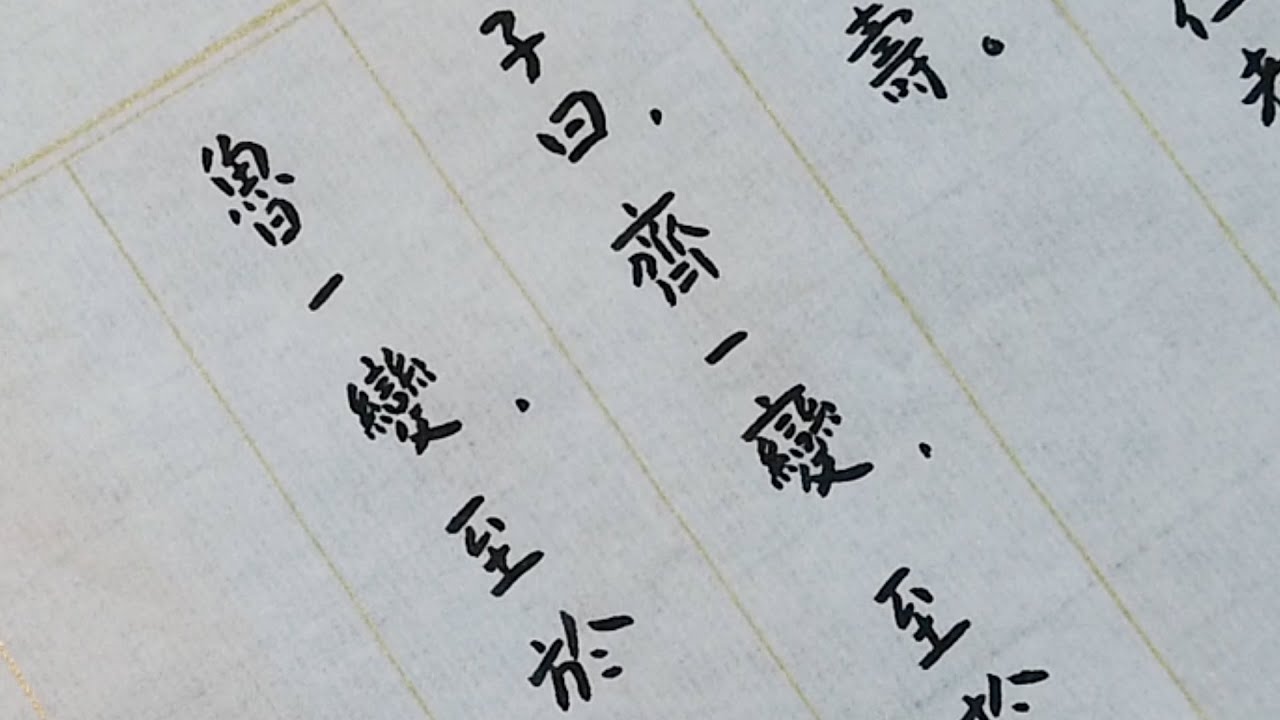 仁者
壽。
子曰，齊一變，至於
魯一變，至於